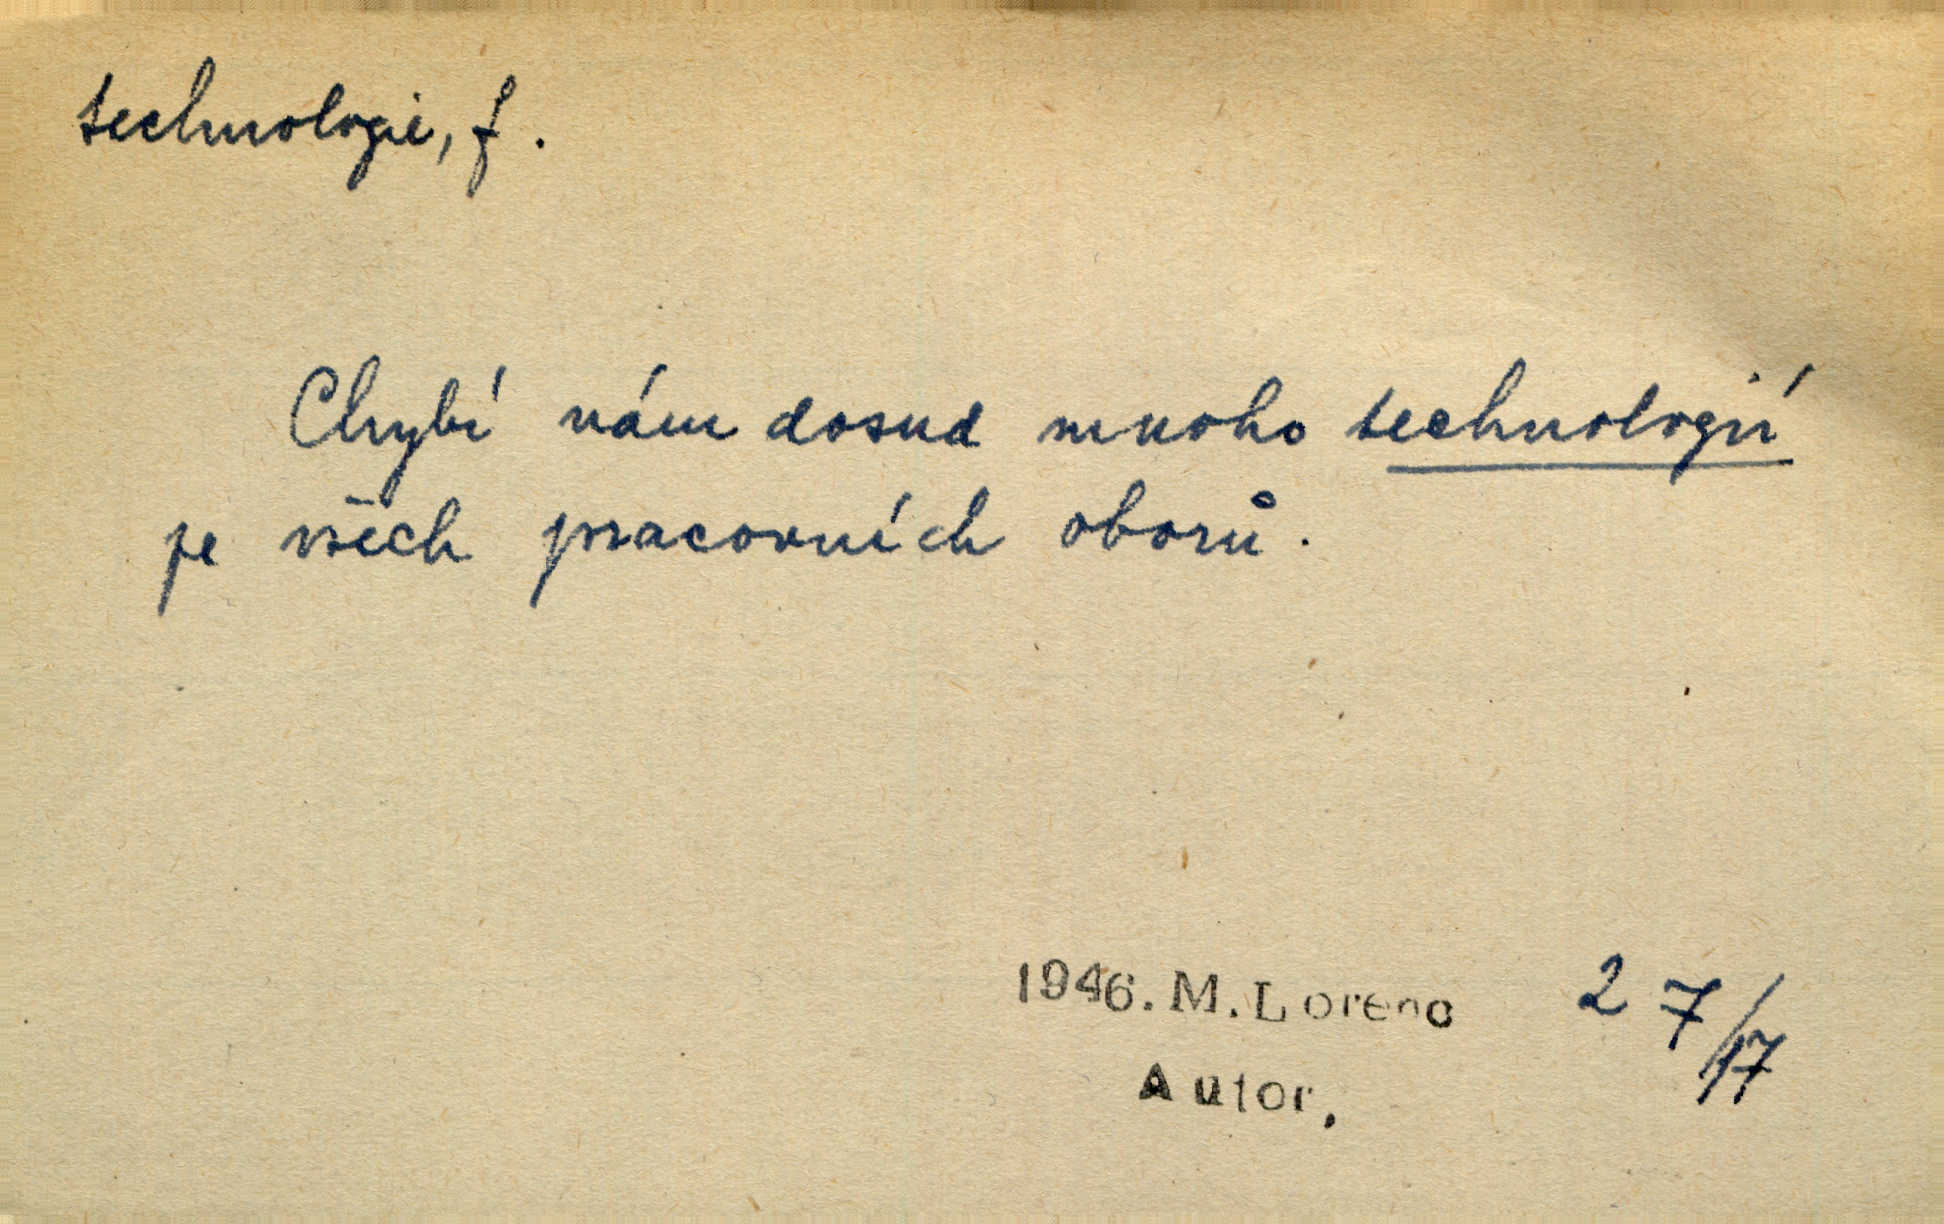 technologie, f.
Chybí nám dosud mnoho technologií
ze všech pracovních oborů.
1946. M. Lorenc
Autor,
2 7/17